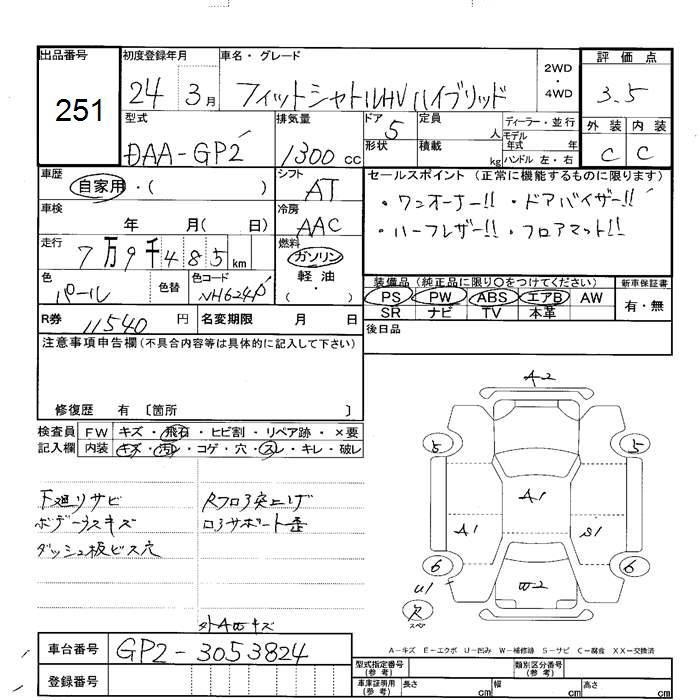 出品番号
251
初度登録年月
24 3月
車名・グレード
フィットシャトルHV ハイブリッド
2WD
・
4WD
評価点
3.5
型式
DAA-GP2
排気量
1300 cc
ドア
5
形状
定員
人
積載
kg
ディーラー・並行
モデル年式 年
ハンドル 左・右
外装 内装
C C
車歴
自家用・( )
シフト
AT
車検
年 月( 日)
冷房
AAC
走行
7万9千485km
燃料
ガソリン
軽油
( )
色
パール
色替
色コード
NH624P
R券
11540 円
名変期限 月 日
セールスポイント (正常に機能するものに限ります)
・ワンオーナー!! ・ドアバイザー!!
・ハーフレザー!! ・フロアマット!!
装備品 (純正品に限り〇をつけてください)
新車保証書
PS PW ABS エアB AW
SR ナビ TV 本革
有・無
後日品
注意事項申告欄(不具合内容等は具体的に記入して下さい)
修復歴 有 〔箇所 〕
検査員
記入欄
FW キズ・飛石・ヒビ割・リペア跡・×要
内装 キズ・汚レ・コゲ・穴・スレ・キレ・破レ
下廻りサビ
ボデー小スキズ
ダッシュ板ビス穴
Rフロア突上げ
ロアサポート歪
A2
5
5
A1
A1
S1
6
6
U1
W2
欠
スペア
A-キズ E-エクボ U-凹み W-補修跡 S-サビ C-腐食 XX-交換済
車台番号
GP2-3053824
登録番号
型式指定番号
(参考)
類別区分番号
(参考)
車庫証明用
(参考)
長さ cm
幅 cm
高さ cm